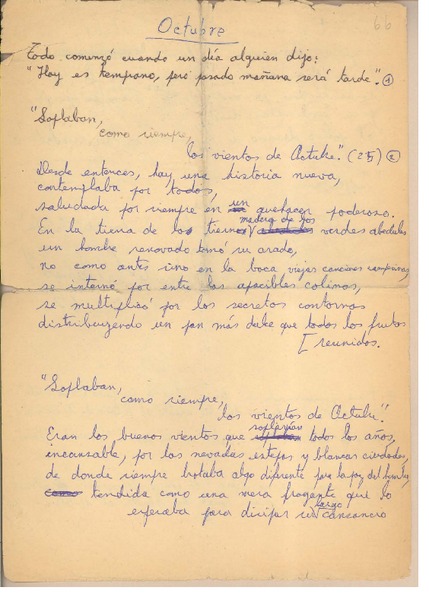 Octubre
66
Todo comenzó cuando un día alguien dijo:
"Hoy es temprano, pero pasado mañana será tarde". (1)
"Soplaban,
como siempre,
los vientos de Octubre." (25) (2)
Desde entonces, hay una historia nueva,
contemplada por todos,
saludada por siempre en un quehacer poderoso.
En la tierra de los tiernos madera de los verdes abedules
un hombre renovado tomó su arado,
no como antes sino en la boca viejas canciones campesinas,
se internó por entre las apacibles colinas,
se multiplicó por los secretos contornos
distribuyendo un pan más dulce que todos los frutos
[reunidos.
"Soplaban,
como siempre,
los vientos de Octubre."
Eran los buenos vientos que soplarían todos los años,
incansable, por las nevadas estepas y blancas ciudades,
de donde siempre brotaba algo diferente para la paz del hombre,
tendida como una mesa fragante que lo
esperaba para disipar su largo cansancio